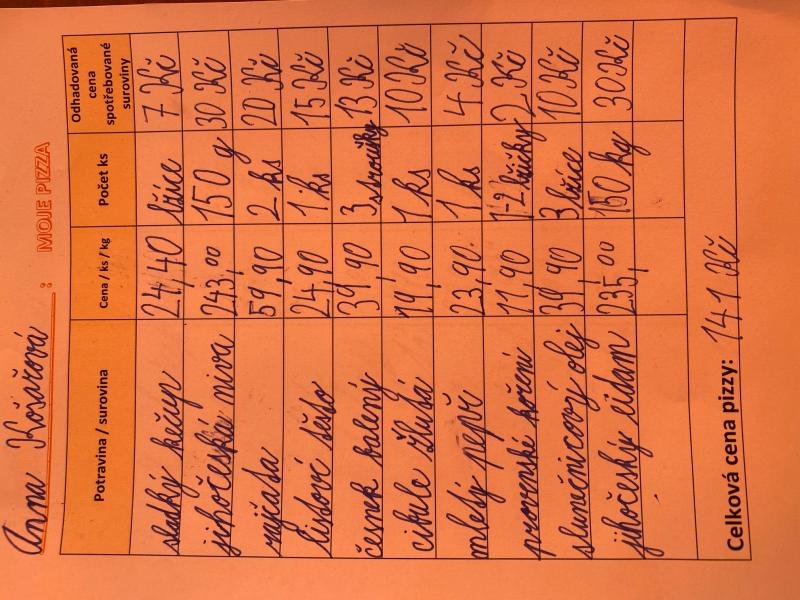 Anna Kosařová : MOJE PIZZA
Potravina / surovina Cena / ks / kg Počet ks Odhadovaná cena spotřebované suroviny
sladký kečup 24,40 lžíce 7 Kč
jihočeská niva 243,00 150 g 30 Kč
rajčata 59,90 2 ks 20 Kč
listové těsto 24,90 1 ks 15 Kč
česnek balený 39,90 3 stroužky 13 Kč
cibule žlutá 19,90 1 ks 10 Kč
mletý pepř 23,90 1 ks 4 Kč
provenské koření 11,90 1-2 lžičky 2 Kč
slunečnicový olej 39,90 3 lžíce 10 Kč
jihočeský eidam 235,00 150 kg 30 Kč
Celková cena pizzy: 141 Kč